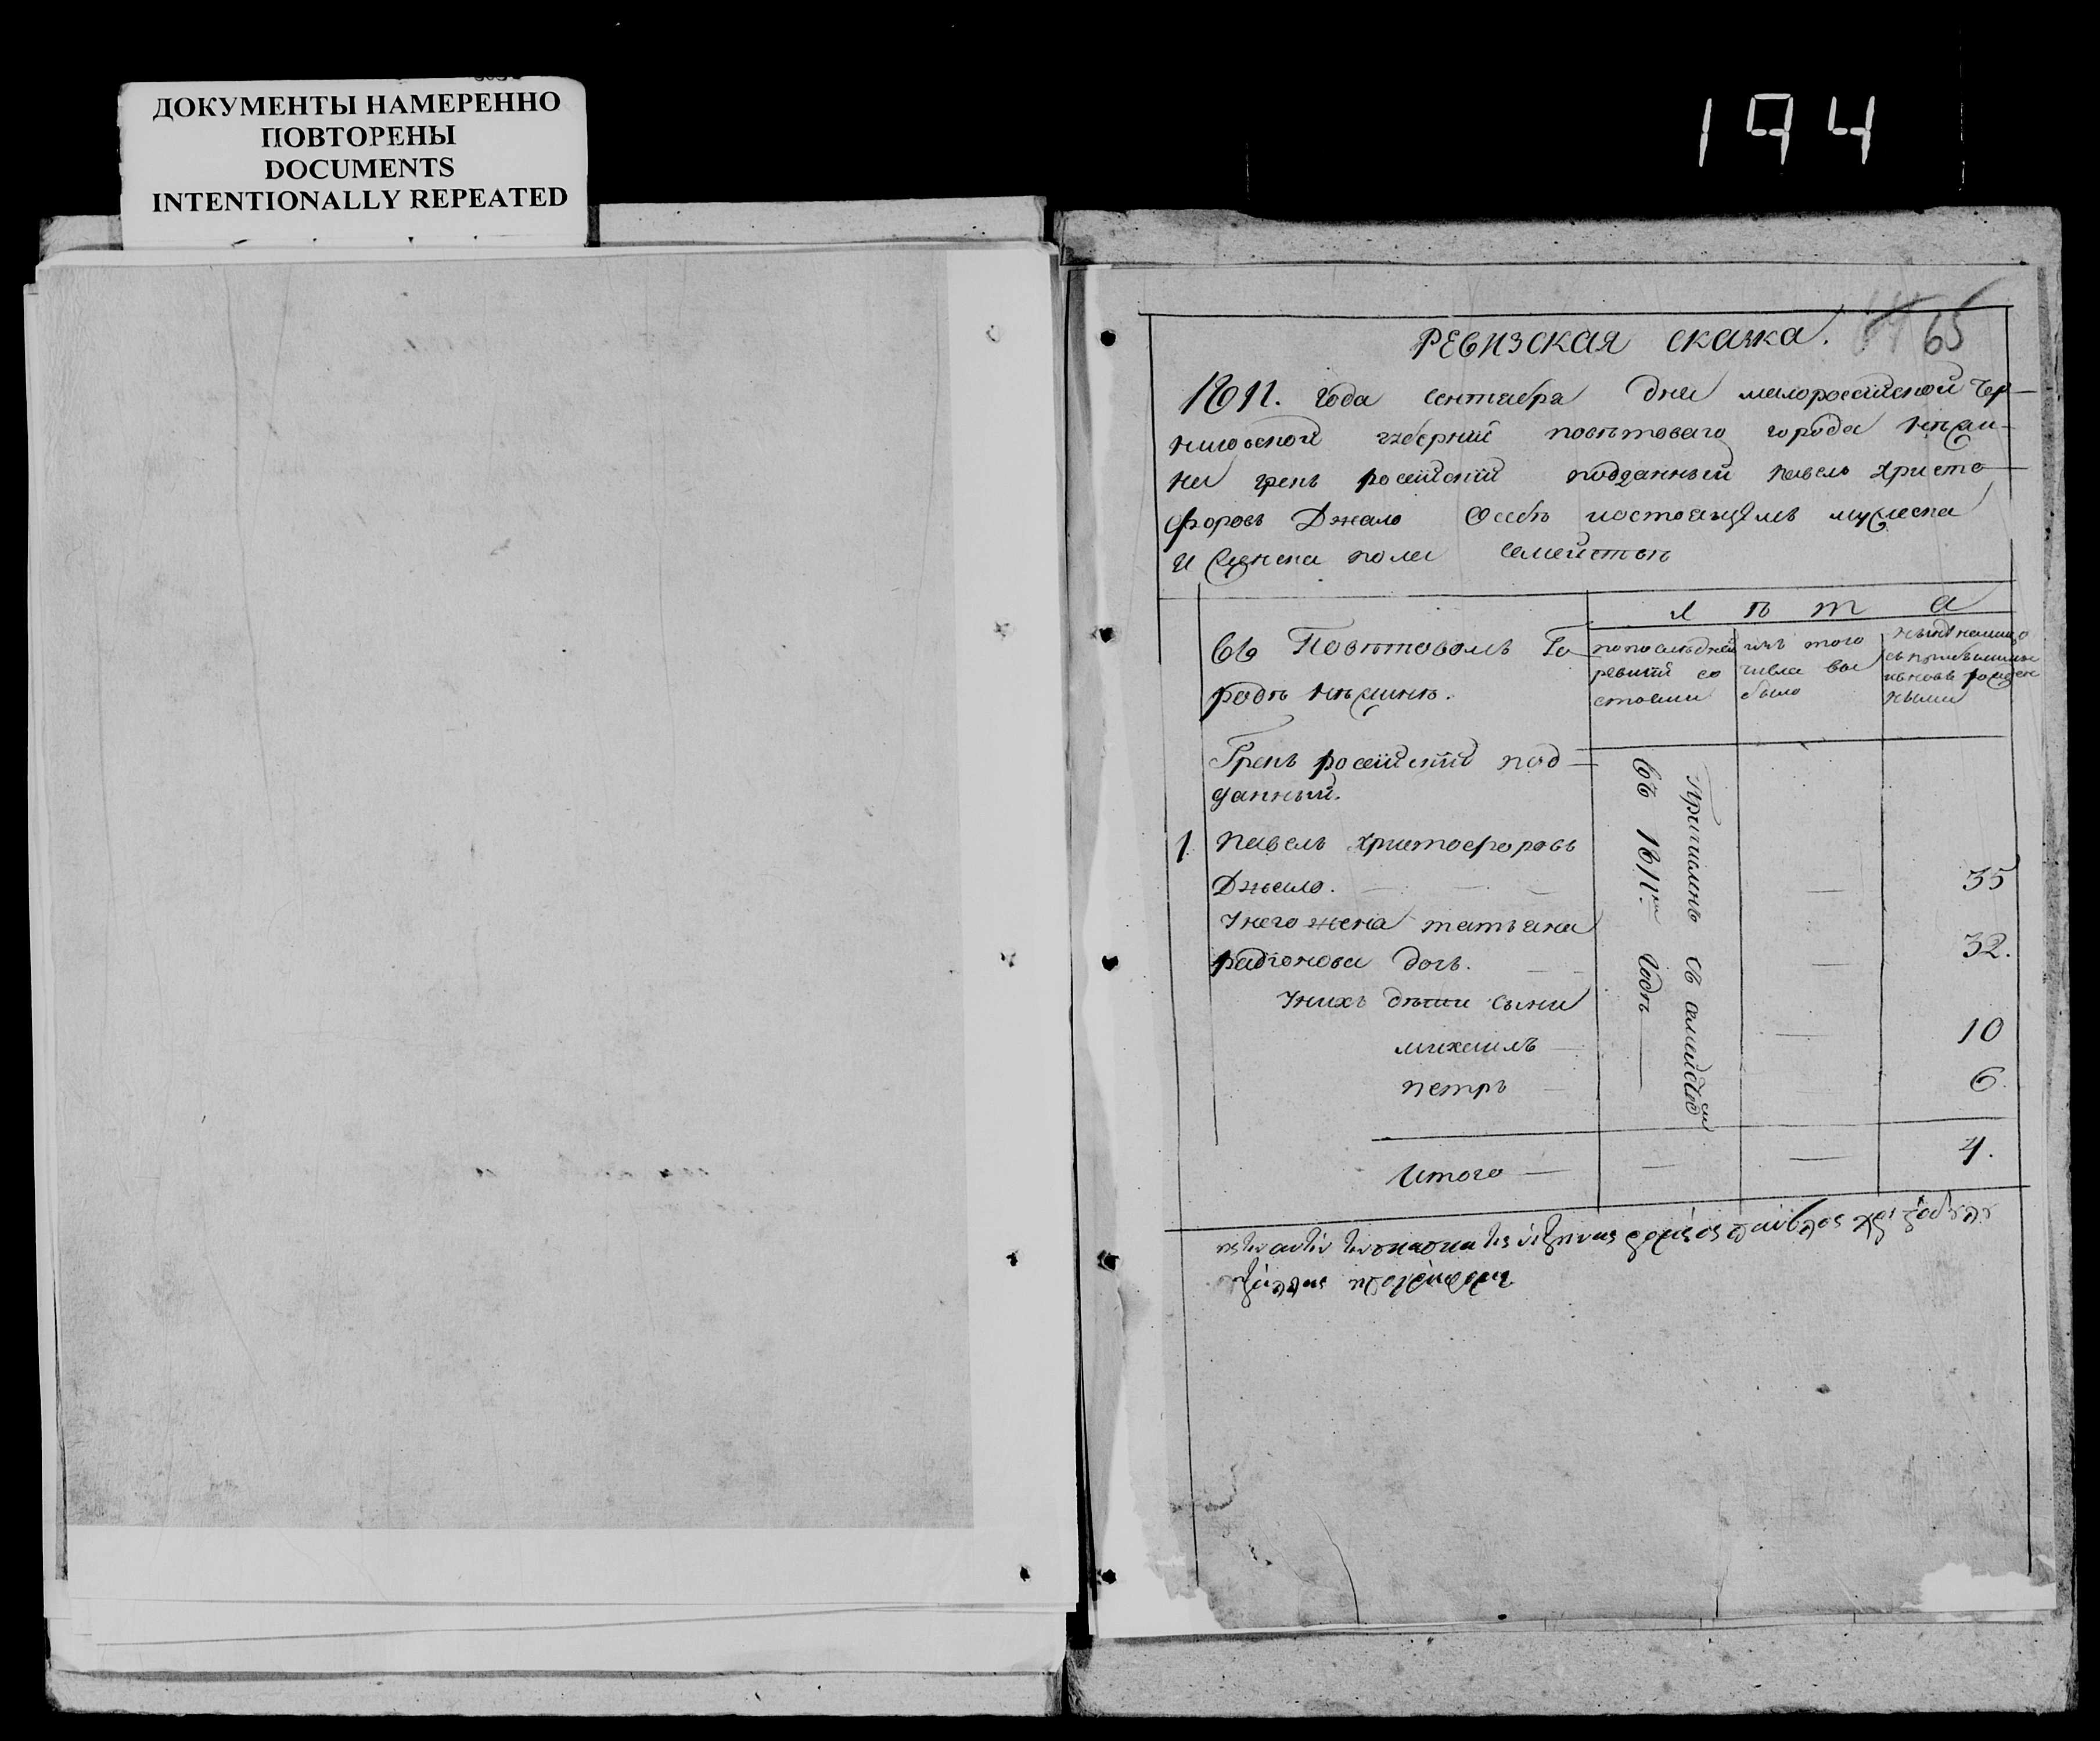 ДОКУМЕНТЫ НАМЕРЕННО
ПОВТОРЕНЫ
DOCUMENTS
INTENTIONALLY REPEATED
194
65
Ревизская сказка.
1811. года сентября дня малоросейской Чер-
ниговской губерний повѣтоваго города нѣжи-
на грекъ росейский подданный павелъ христо-
форовъ Джало О себѣ и состоящемъ мужеска
и женска пола семействѣ
лѣта
въ Повѣтовомъ Го-
родѣ нѣжинѣ.
по последней
ревизий со
стояли
изъ того
числа вы
было
ныне налицо
съ прибылыми
и вновь рожден
ными
Грекъ росейский под-
данный.
1 павелъ христофоровъ
Джало. 35
У него жена татьяна
радионова дочь. 32.
У нихъ дѣти сыни
михаилъ 10
петръ 6.
въ 1811м годѣ
съ семейством
Итого 4.